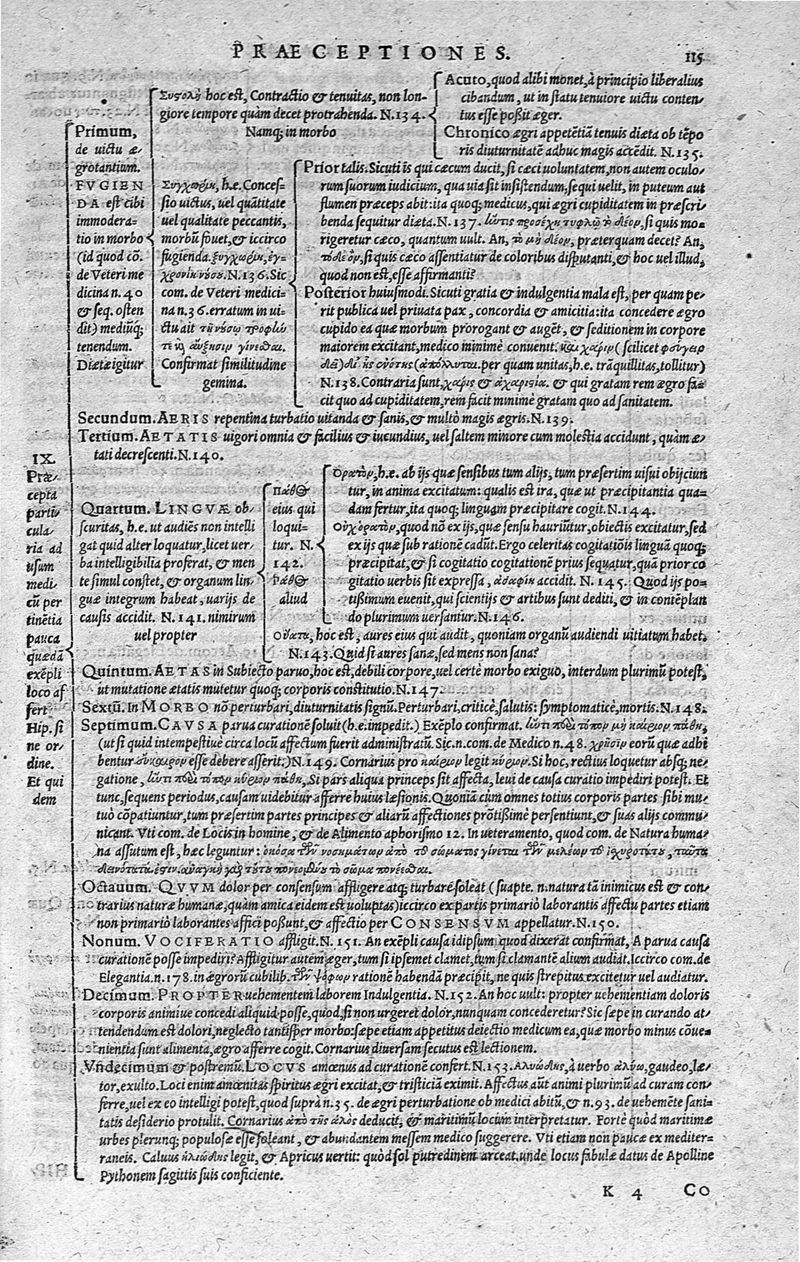 PRAECEPTIONES.
115
IX.
Præ-
cepta
partiu
cula-
ria ad
usum
medi-
cũ per
tinẽtia
pauca
quædã
exẽpli
loco af
fert
Hip. si
ne or-
dine.
Et qui
dem
Primum,
de uictu æ-
grotantium.
FVGIEN
DA est cibi
immodera-
tio in morbo
(id quod cõ.
de Veteri me
dicina n. 40
& seq. osten
dit) mediũq;
tenendum.
Diætæ igitur
Συστολὴ hoc est, Contractio & tenuitas, non lon-
giore tempore quàm decet protrahenda. N. 134.
Namq; in morbo
Acuto, quod alibi monet, à principio liberalius
cibandum, ut in statu tenuiore uictu conten-
tus esse poßit æger.
Chronico ægri appetẽtiã tenuis diæta ob tẽpo
ris diuturnitatẽ adhuc magis accẽdit. N. 135.
h.e. Conces-
sio uictus, uel quãtitate
uel qualitate peccantis,
morbũ fouet, & iccirco
fugienda.
N. 136. Sic
com. de Veteri medici-
na n. 36. erratum in ui-
ctu ait
Confirmat similitudine
gemina.
Prior talis. Sicuti is qui cæcum ducit, si cæci voluntatem, non autem oculo-
rum suorum iudicium, qua uia sit insistendum, sequi uelit, in puteum aut
flumen præceps abit: ita quoq; medicus, qui ægri cupiditatem in præscri-
benda sequitur diæta. N. 137. si quis mo-
rigeretur cæco, quantum uult. An, præterquam decet? An,
si quis cæco assentiatur de coloribus disputanti, & hoc uel illud,
quod non est, esse affirmanti?
Posterior huiusmodi. Sicuti gratia & indulgentia mala est, per quam pe-
rit publica uel priuata pax, concordia & amicitia: ita concedere ægro
cupido ea quæ morbum prorogant & augẽt, & seditionem in corpore
maiorem excitant, medico minimè conuenit. (scilicet
per quam unitas, h.e. trãquillitas, tollitur)
N. 138. Contraria sunt, χάρις & ἀχαριστία. & qui gratam rem ægro fa-
cit quo ad cupiditatem, rem facit minimè gratam quo ad sanitatem.
Secundum. AERIS repentina turbatio uitanda & sanis, & multò magis ægris. N. 139.
Tertium. AETATIS uigori omnia & facilius & iucundius, uel saltem minore cum molestia accidunt, quàm æ-
tati decrescenti. N. 140.
Quartum. LINGVAE ob-
scuritas, h.e. ut audiẽs non intelli
gat quid alter loquatur, licet uer-
ba intelligibilia proferat, & men
te simul constet, & organum lin-
guæ integrum habeat, uarijs de
causis accidit. N. 141. nimirum
uel propter
πάθος
eius qui
loqui-
tur. N.
142.
πάθος
aliud
Ὁρατὸν, h.e. ab ijs quæ sensibus tum alijs, tum præsertim uisui obijciun
tur, in anima excitatum: qualis est ira, quæ ut præcipitantia qua-
dam fertur, ita quoq; linguam præcipitare cogit. N. 144.
Οὐχ ὁρατὸν, quod nõ ex ijs, quæ sensu hauriũtur, obiectis excitatur, sed
ex ijs quæ sub rationẽ cadũt. Ergo celeritas cogitatiõis linguã quoq;
præcipitat, & si cogitatio cogitationẽ prius sequatur, quã prior co
gitatio uerbis sit expressa, accidit. N. 145. Quod ijs po-
tißimum euenit, qui scientijs & artibus sunt dediti, & in contẽplan
do plurimum uersantur. N. 146.
οὔατα, hoc est, aures eius qui audit, quoniam organũ audiendi uitiatum habet.
N. 143. Quid si aures sanæ, sed mens non sana?
Quintum. AETAS in Subiecto paruo, hoc est, debili corpore, uel certè morbo exiguo, interdum plurimũ potest,
ut mutatione ætatis mutetur quoq; corporis constitutio. N. 147.
Sextũ. In MORBO nõ perturbari, diuturnitatis signũ. Perturbari, criticè, salutis: symptomaticè, mortis. N. 148.
Septimum. CAVSA parua curationẽ soluit (h.e. impedit.) Exẽplo confirmat.
(ut si quid intempestiuè circa locũ affectum fuerit administratũ. Sic. n. com. de Medico n. 48. χρῆσιν eorũ quæ adhi
bentur esse debere asserit.) N. 149. Cornarius pro καίριον legit κύριον. Si hoc, rectius loquetur absq; ne-
gatione, Si pars aliqua princeps sit affecta, leui de causa curatio impediri potest. Et
tunc, sequens periodus, causam uidebitur afferre huius læsionis. Quoniã cùm omnes totius corporis partes sibi mu-
tuò cõpatiuntur, tum præsertim partes principes & aliarũ affectiones prõtißimè persentiunt, & suas alijs commu-
nicant. Vti com. de Locis in homine, & de Alimento aphorismo 12. In ueteramento, quod com. de Natura huma-
na assutum est, hæc leguntur:
Octauum. QVVM dolor per consensum affligere atq; turbare soleat (suapte. n. natura tã inimicus est & con-
trarius naturæ humanæ, quàm amica eidem est uoluptas) iccirco ex partis primariò laborantis affectu partes etiam
non primariò laborantes affici poßunt, & affectio per CONSENSVM appellatur. N. 150.
Nonum. VOCIFERATIO affligit. N. 151. An exẽpli causa id ipsum quod dixerat confirmat, A parua causa
curationẽ posse impediri? Affligitur autem æger, tum si ipsemet clamet, tum si clamantẽ alium audiat. Iccirco com. de
Elegantia. n. 178. in ægrorũ cubilib. τῶν ψόφων rationẽ habendã præcipit, ne quis strepitus excitetur uel audiatur.
Decimum. PROPTER uehementem laborem Indulgentia. N. 152. An hoc uult: propter uehementiam doloris
corporis animiue concedi aliquid posse, quod, si non urgeret dolor, nunquam concederetur? Sic sæpe in curando at-
tendendum est dolori, neglecto tantisper morbo: sæpe etiam appetitus deiectio medicum ea, quæ morbo minus cõue-
nientia sunt alimenta, ægro afferre cogit. Cornarius diuersam secutus est lectionem.
Vndecimum & postremũ. LOCVS amœnus ad curationẽ confert. N. 153. Ἀλυώδης, à uerbo ἀλύω, gaudeo, læ-
tor, exulto. Loci enim amœnitas spiritus ægri excitat, & tristiciã eximit. Affectus aũt animi plurimũ ad curam con-
ferre, uel ex eo intelligi potest, quod suprà n. 35. de ægri perturbatione ob medici abitũ, & n. 93. de uehemẽte sani-
tatis desiderio protulit. Cornarius ἀπὸ τῆς ἁλὸς deducit, & maritimũ locum interpretatur. Fortè quòd maritimæ
urbes plerunq; populosæ esse soleant, & abundantem messem medico suggerere. Vti etiam non paucæ ex mediter-
raneis. Caluus ἡλιώδης legit, & Apricus uertit: quòd sol putredinem arceat. unde locus fabulæ datus de Apolline
Pythonem sagittis suis conficiente.
K 4
CO